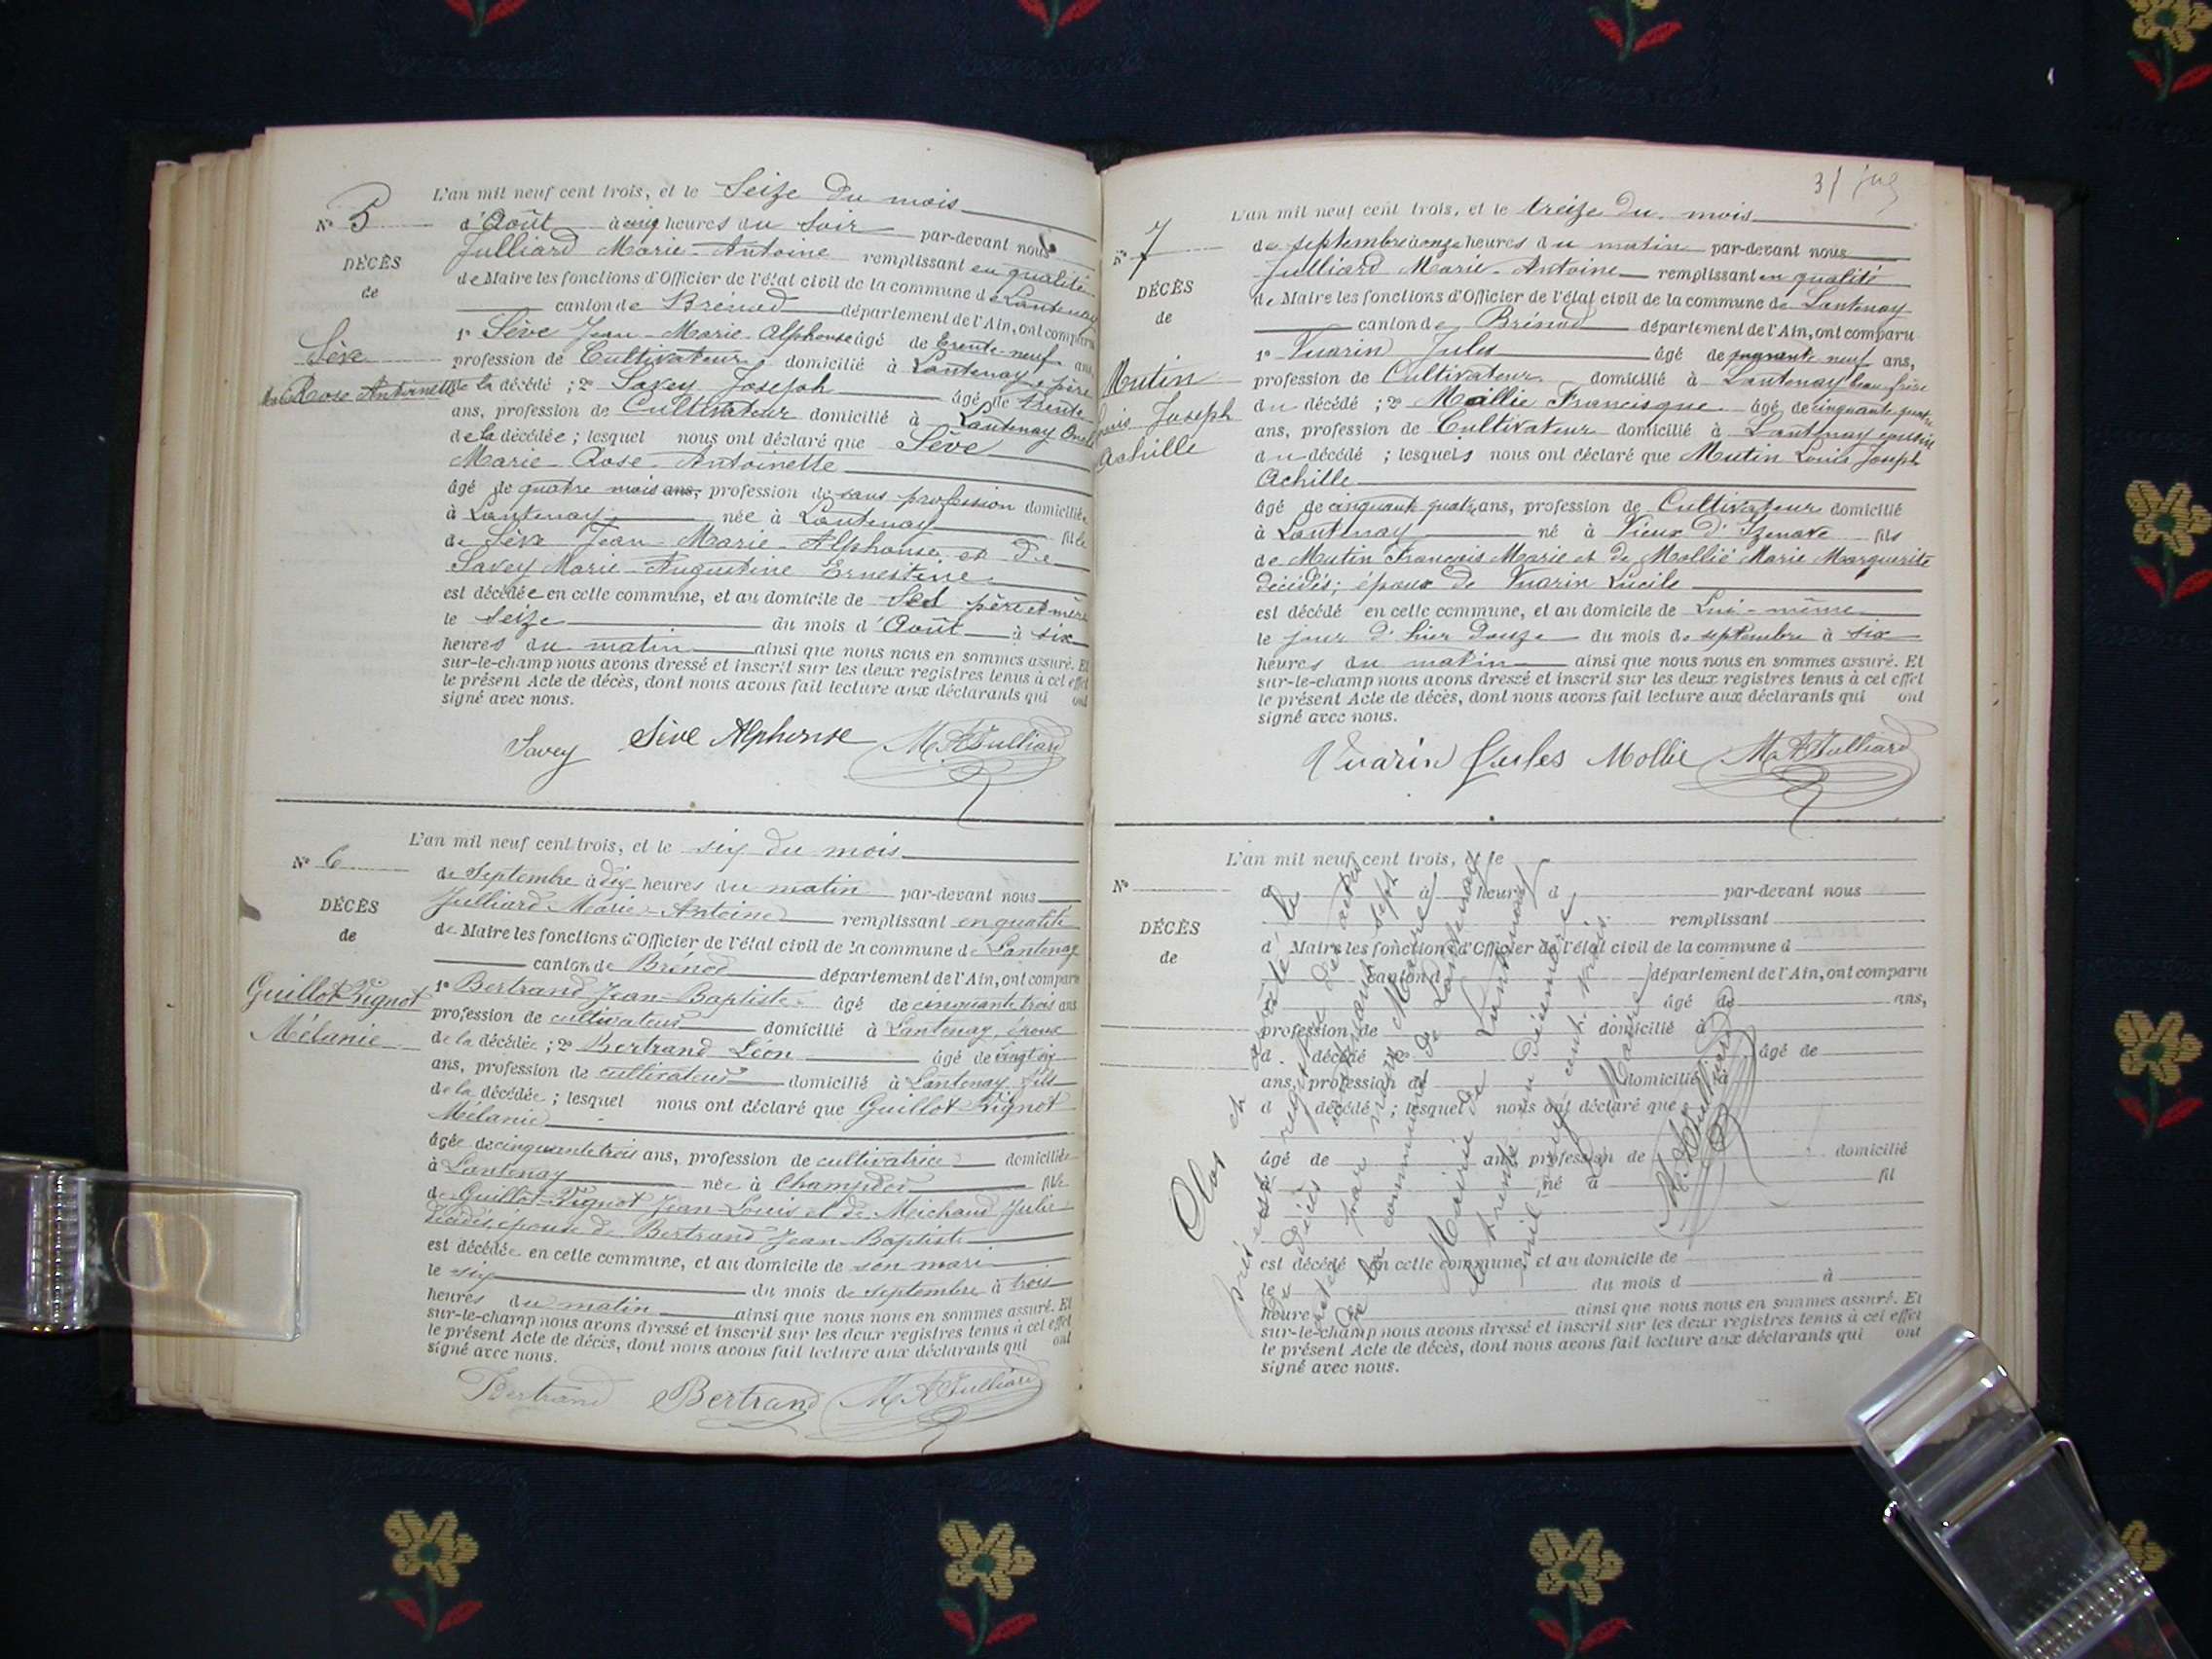 N° 5
DÉCÈS
de
Sève
Rose Antoinette
L'an mil neuf cent trois, et le Seize du mois
d'Août à cinq heures du Soir par-devant nous
Julliard Marie-Antoine remplissant en qualité
de Maire les fonctions d'Officier de l'état civil de la commune de Lantenay
canton de Brénod département de l'Ain, ont comparu
1° Sève Jean-Marie-Alphonse âgé de trente-neuf ans,
profession de Cultivateur domicilié à Lantenay, père
de la décédé ; 2° Savey Joseph âgé de trente
ans, profession de Cultivateur domicilié à Lantenay Oncle
de la décédée ; lesquel nous ont déclaré que Sève
Marie-Rose-Antoinette
âgé de quatre mois ans, profession de sans profession domiciliée
à Lantenay née à Lantenay fille
de Sève Jean-Marie-Alphonse et de
Savey Marie-Augustine Ernestine
est décédée en cette commune, et au domicile de Ses père et mère
le Seize du mois d'Août à six
heures du matin ainsi que nous nous en sommes assuré. Et
sur-le-champ nous avons dressé et inscrit sur les deux registres tenus à cet effet
le présent Acte de décès, dont nous avons fait lecture aux déclarants qui ont
signé avec nous.
Savey Sève Alphonse M.A Julliard
N° 6
DÉCÈS
de
Guillot-Vignot
Mélanie
L'an mil neuf cent trois, et le six du mois
de Septembre à dix heures du matin par-devant nous
Julliard Marie-Antoine remplissant en qualité
de Maire les fonctions d'Officier de l'état civil de la commune de Lantenay
canton de Brénod département de l'Ain, ont comparu
1° Bertrand Jean-Baptiste âgé de cinquante trois ans
profession de cultivateur domicilié à Lantenay, époux
de la décédée ; 2° Bertrand Léon âgé de vingt six
ans, profession de cultivateur domicilié à Lantenay, fils
de la décédée ; lesquel nous ont déclaré que Guillot-Vignot
Mélanie
âgée de cinquante trois ans, profession de cultivatrice domiciliée
à Lantenay née à Champdor fille
de Guillot-Vignot Jean-Louis et de Michaud Julie
décédés épouse de Bertrand Jean-Baptiste
est décédée en cette commune, et au domicile de son mari
le six du mois de septembre à trois
heures du matin ainsi que nous nous en sommes assuré. Et
sur-le-champ nous avons dressé et inscrit sur les deux registres tenus à cet effet
le présent Acte de décès, dont nous avons fait lecture aux déclarants qui ont
signé avec nous.
Bertrand Bertrand M.A Julliard
31
N° 7
DÉCÈS
de
Mutin
Louis Joseph
Achille
L'an mil neuf cent trois, et le treize du mois
de septembre à onze heures du matin par-devant nous
Julliard Marie-Antoine remplissant en qualité
de Maire les fonctions d'Officier de l'état civil de la commune de Lantenay
canton de Brénod département de l'Ain, ont comparu
1° Vuarin Jules âgé de quarante neuf ans,
profession de Cultivateur domicilié à Lantenay beau frère
du décédé ; 2° Mollie Francisque âgé de cinquante quatre
ans, profession de Cultivateur domicilié à Lantenay cousin
du décédé ; lesquels nous ont déclaré que Mutin Louis Joseph
Achille
âgé de cinquante quatre ans, profession de Cultivateur domicilié
à Lantenay né à Vieux d'Izenave fils
de Mutin François Marie et de Mollié Marie Marguerite
décédés; époux de Vuarin Lucile
est décédé en cette commune, et au domicile de Lui-même
le jour d'hier douze du mois de septembre à six
heures du matin ainsi que nous nous en sommes assuré. Et
sur-le-champ nous avons dressé et inscrit sur les deux registres tenus à cet effet
le présent Acte de décès, dont nous avons fait lecture aux déclarants qui ont
signé avec nous.
Vuarin Jules Mollie M.A Julliard
N°
DÉCÈS
de
L'an mil neuf cent trois, et le
d à heure d par-devant nous
remplissant
d Maire les fonctions d'Officier de l'état civil de la commune d
canton d département de l'Ain, ont comparu
âgé de ans,
profession de domicilié à
d décédé 2° âgé de
ans, profession de domicilié à
d décédé ; lesquel nous ont déclaré que
âgé de ans profession de domicilié
à né à fil
est décédé en cette commune, et au domicile de
le du mois d à
heure ainsi que nous nous en sommes assuré. Et
sur-le-champ nous avons dressé et inscrit sur les deux registres tenus à cet effet
le présent Acte de décès, dont nous avons fait lecture aux déclarants qui ont
signé avec nous.
Clos et arrêté le
présent registre des actes
de Décès contenant sept
actes par nous Maire
de la commune de Lantenay
Mairie de Lantenay
le trente un décembre
mil neuf cent trois
Le Maire
M.A Julliard